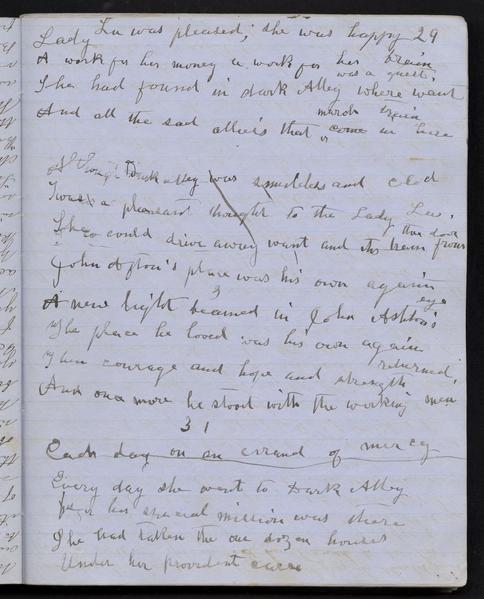 Lady Lu was pleased; she was happy 29
A work for her money a work for her brain
was a guest,
She had found in dark Alley where want
And all the sad allies that come in here
march train
Dark alley was smileless and clod
Twas a pleasant thought to the Lady Lu,
She could drive away want and its train from
this dark
John Ashton's place was his own again
3
A new light beamed in John Ashton's
eye
The place he loved was his own again
Then courage and hope and strength
returned,
And once more he stood with the working men
3 1
Each day on an errand of mercy
Every day she went to Dark Alley
her special mission was there
She had taken the one dozen houses
Under her provident care